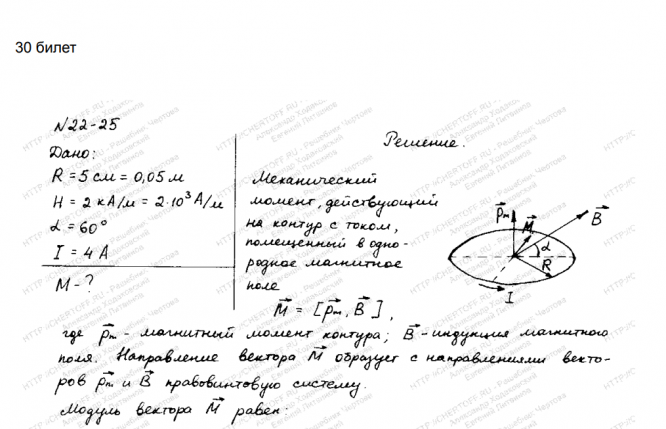 30 билет
N22-25
Дано:
R = 5 см = 0,05 м
H = 2 кА/м = 2·10³ А/м
α = 60°
I = 4 А
M - ?
Решение.
Механический
момент, действующий
на контур с током,
помещенный в одно-
родное магнитное
поле
M⃗ = [p⃗ₘ, B⃗],
где p⃗ₘ - магнитный момент контура; B⃗ - индукция магнитного
поля. Направление вектора M⃗ образует с направлениями векто-
ров p⃗ₘ и B⃗ правовинтовую систему.
Модуль вектора M⃗ равен:
p⃗ₘ
M⃗
B⃗
α
R
I
HTTP://CHERTOFF.RU - Решебник Чертова
Александр Ходаковский
Евгений Литвинов